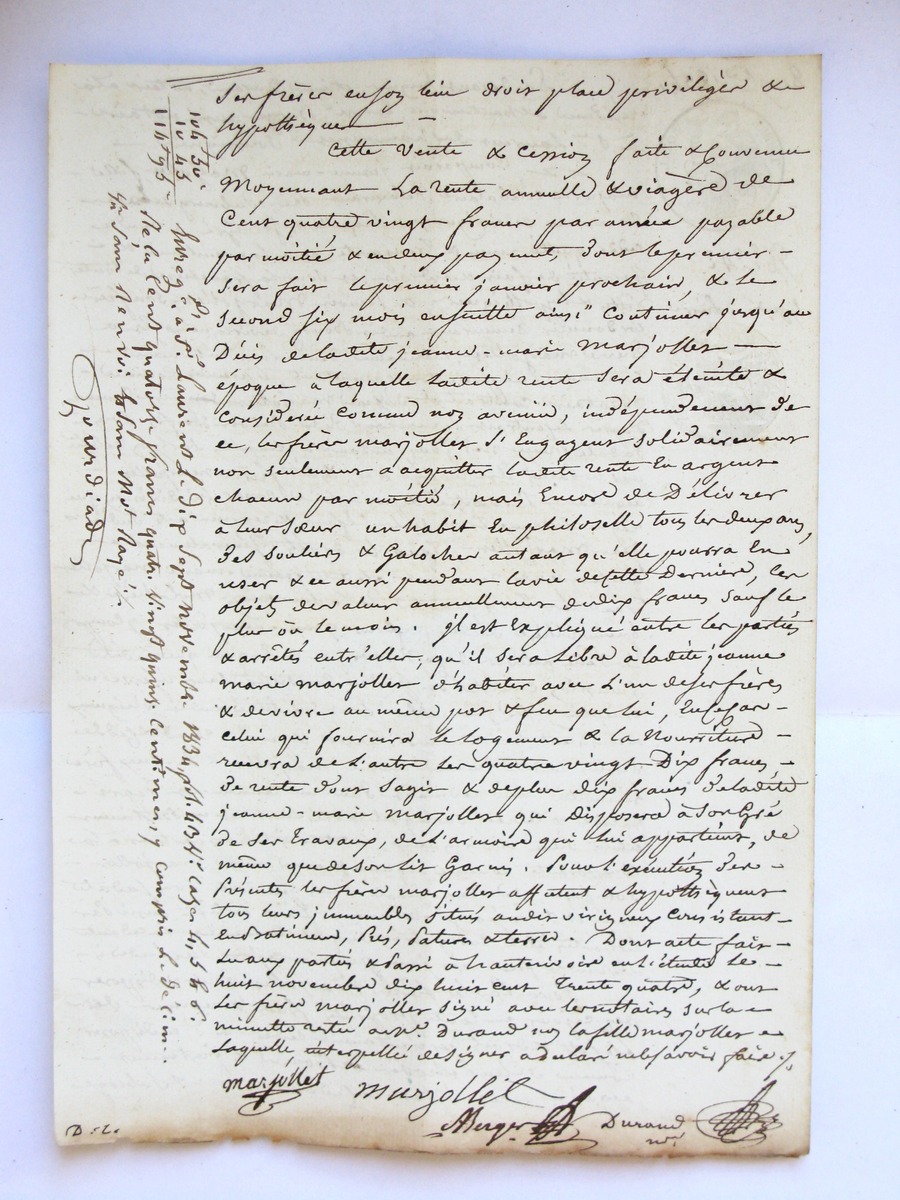 ses frères en son lieu droit place privilèges &
hypothèques —
Cette Vente & Cession faite & Convenue
Moyennant La rente annuelle & viagère de
Cent quatre vingt francs par année payable
par moitié & en deux payments, dont le premier –
sera fait le premier janvier prochain, & le
second six mois ensuitte ainsi " Continuer jusqu'au
Décès de ladite jeanne - marie Marjollet —
époque à laquelle ladite rente sera éteinte &
Considérée Comme non avenüe, indépendement de
ce, les frères marjollet s'Engagent solidairement
non seulement a acquitter ladite rente En argent
chacun par moitié, mais Encore de Délivrer
à leur sœur un habit En philoselle tous les deux ans,
Des souliers & Galoches autant qu'elle pourra En
user & ce aussi pendant la vie de cette Dernière, Ces
objets de valeur annuellement de dix francs sauf le
plus ou le moins. il est Expliqué entre les parties
& arrêtés entr'elles, qu'il sera Libre à ladite jeanne
marie marjollet d'habiter avec L'un de ses frères
& de vivre au même pot & feu que lui, En ce Cas –
Celui qui fournira le logement & la Nourriture –
recevra de L'autre Les quatre vingt Dix francs –
de rente dont sagit & de plus dix francs de ladite
jeanne - marie marjollet qui Disposera à son Gré
de ses Travaux, de L'armoire qui lui appartient, de
même que de son lit Garni. Pour L'exécution des –
Présentes les frères marjollet affectent & hypothèquent
tous leurs jmmeubles situés audit virigneux Consistant –
en Batiment, Prés, Patures & terres. Dont acte fait –
Lu aux parties & Passé à hauterivoire en L'étude Le –
huit novembre dix huit cent Trente quatre, & ont
Les frères marjollet signé avec les notaires sur la –
minutte restée au pr. Durand non la fille marjollet –
Laquelle interpellée de signer a déclaré ne le savoir faire ./.
marjollet
Marjollet
Merger
Durand
nre
D. L.
104 f 50 c
10 45
114 f 95
Enreg é à St Laurent Le dix sept Novembre 1834, fol. 43 V° Cases 4, 5 & 6.
Reçu Cent quatorze francs quatre vingt quinze Centimes, y compris Le décime.